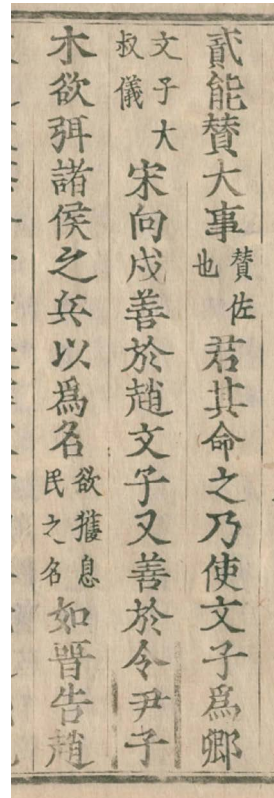 貳能賛大事賛佐也君其命之乃使文子爲卿
文子大叔儀宋向戌善於趙文子又善於令尹子
木欲弭諸侯之兵以爲名欲獲息民之名如晉告趙